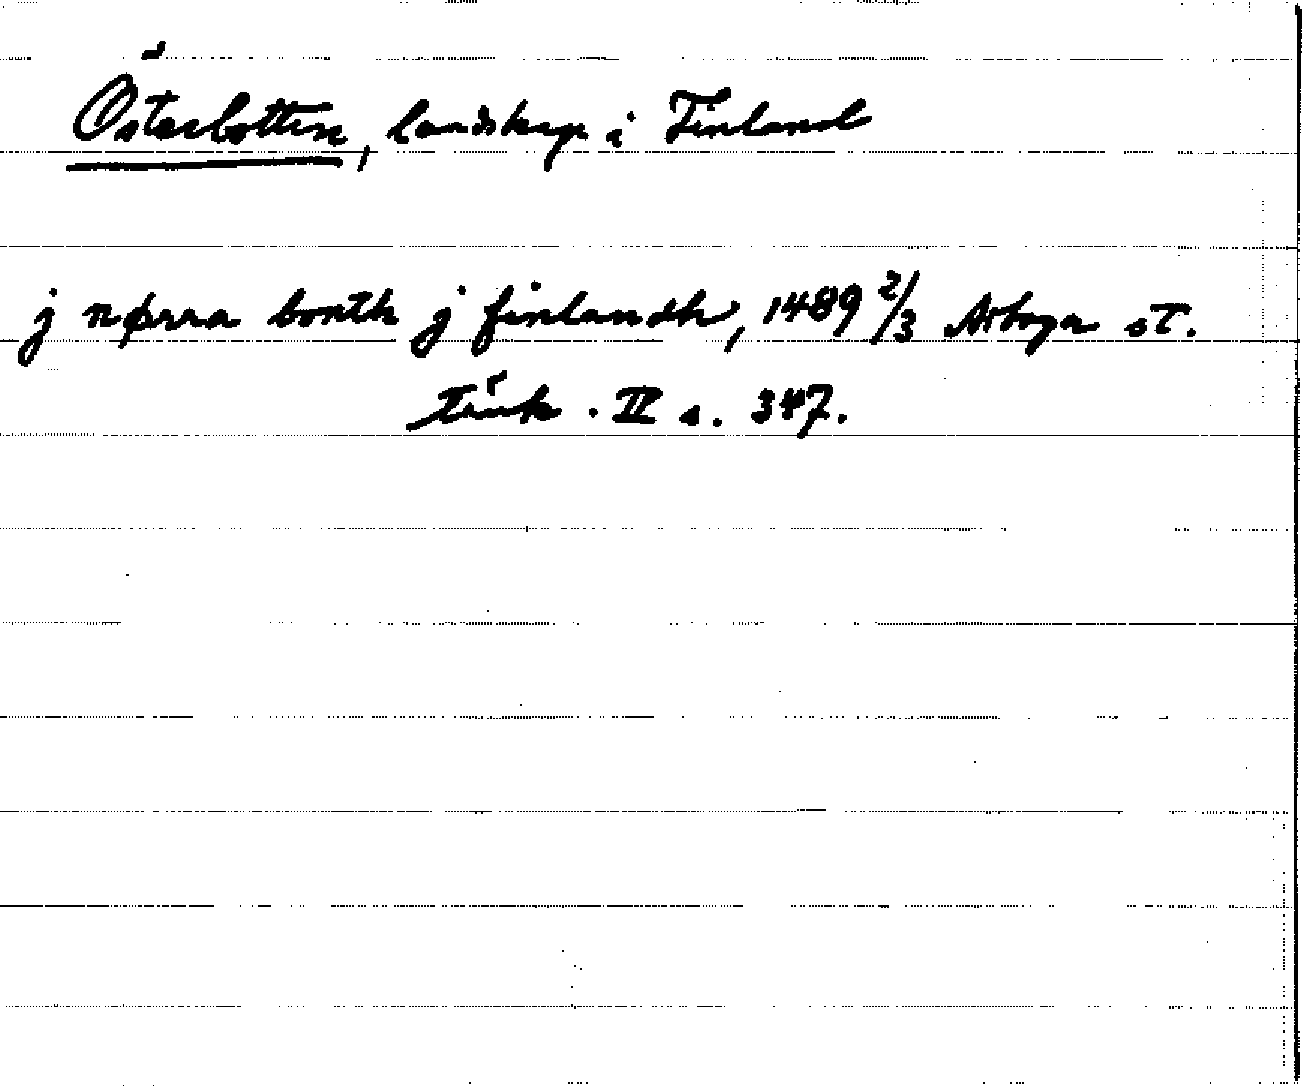 Österbotten, landskap i Finland
j nørra bonth j finlandh, 1489 2/3 Arboga st.
tänk. II s. 347.